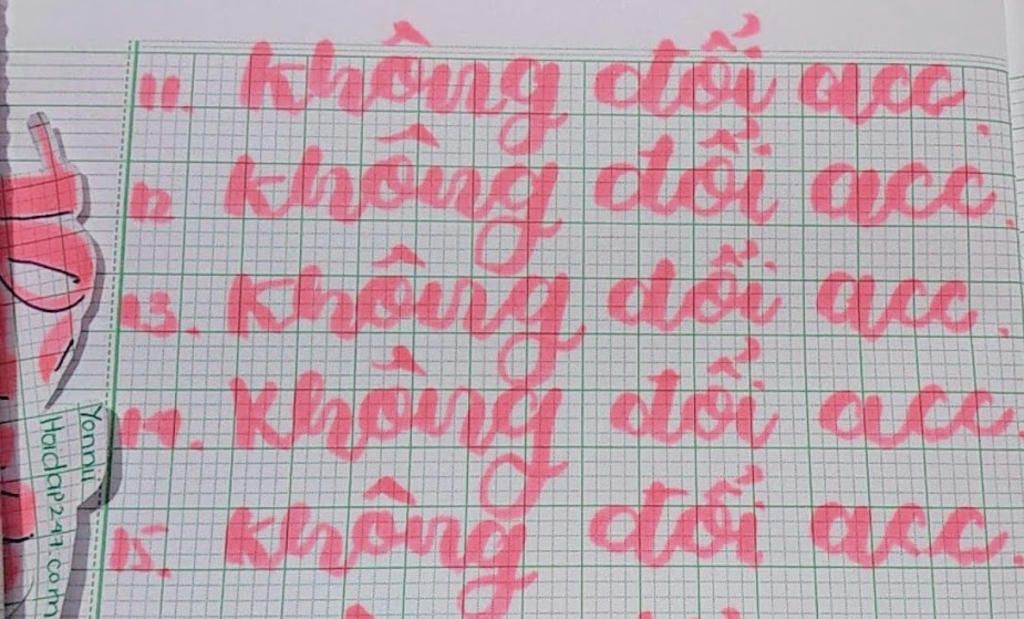 11. Không đổi acc.
12 Không đổi acc.
13. Không đổi acc.
14. Không đổi acc.
15. Không đổi acc.
Yannii
Hoidap247.com